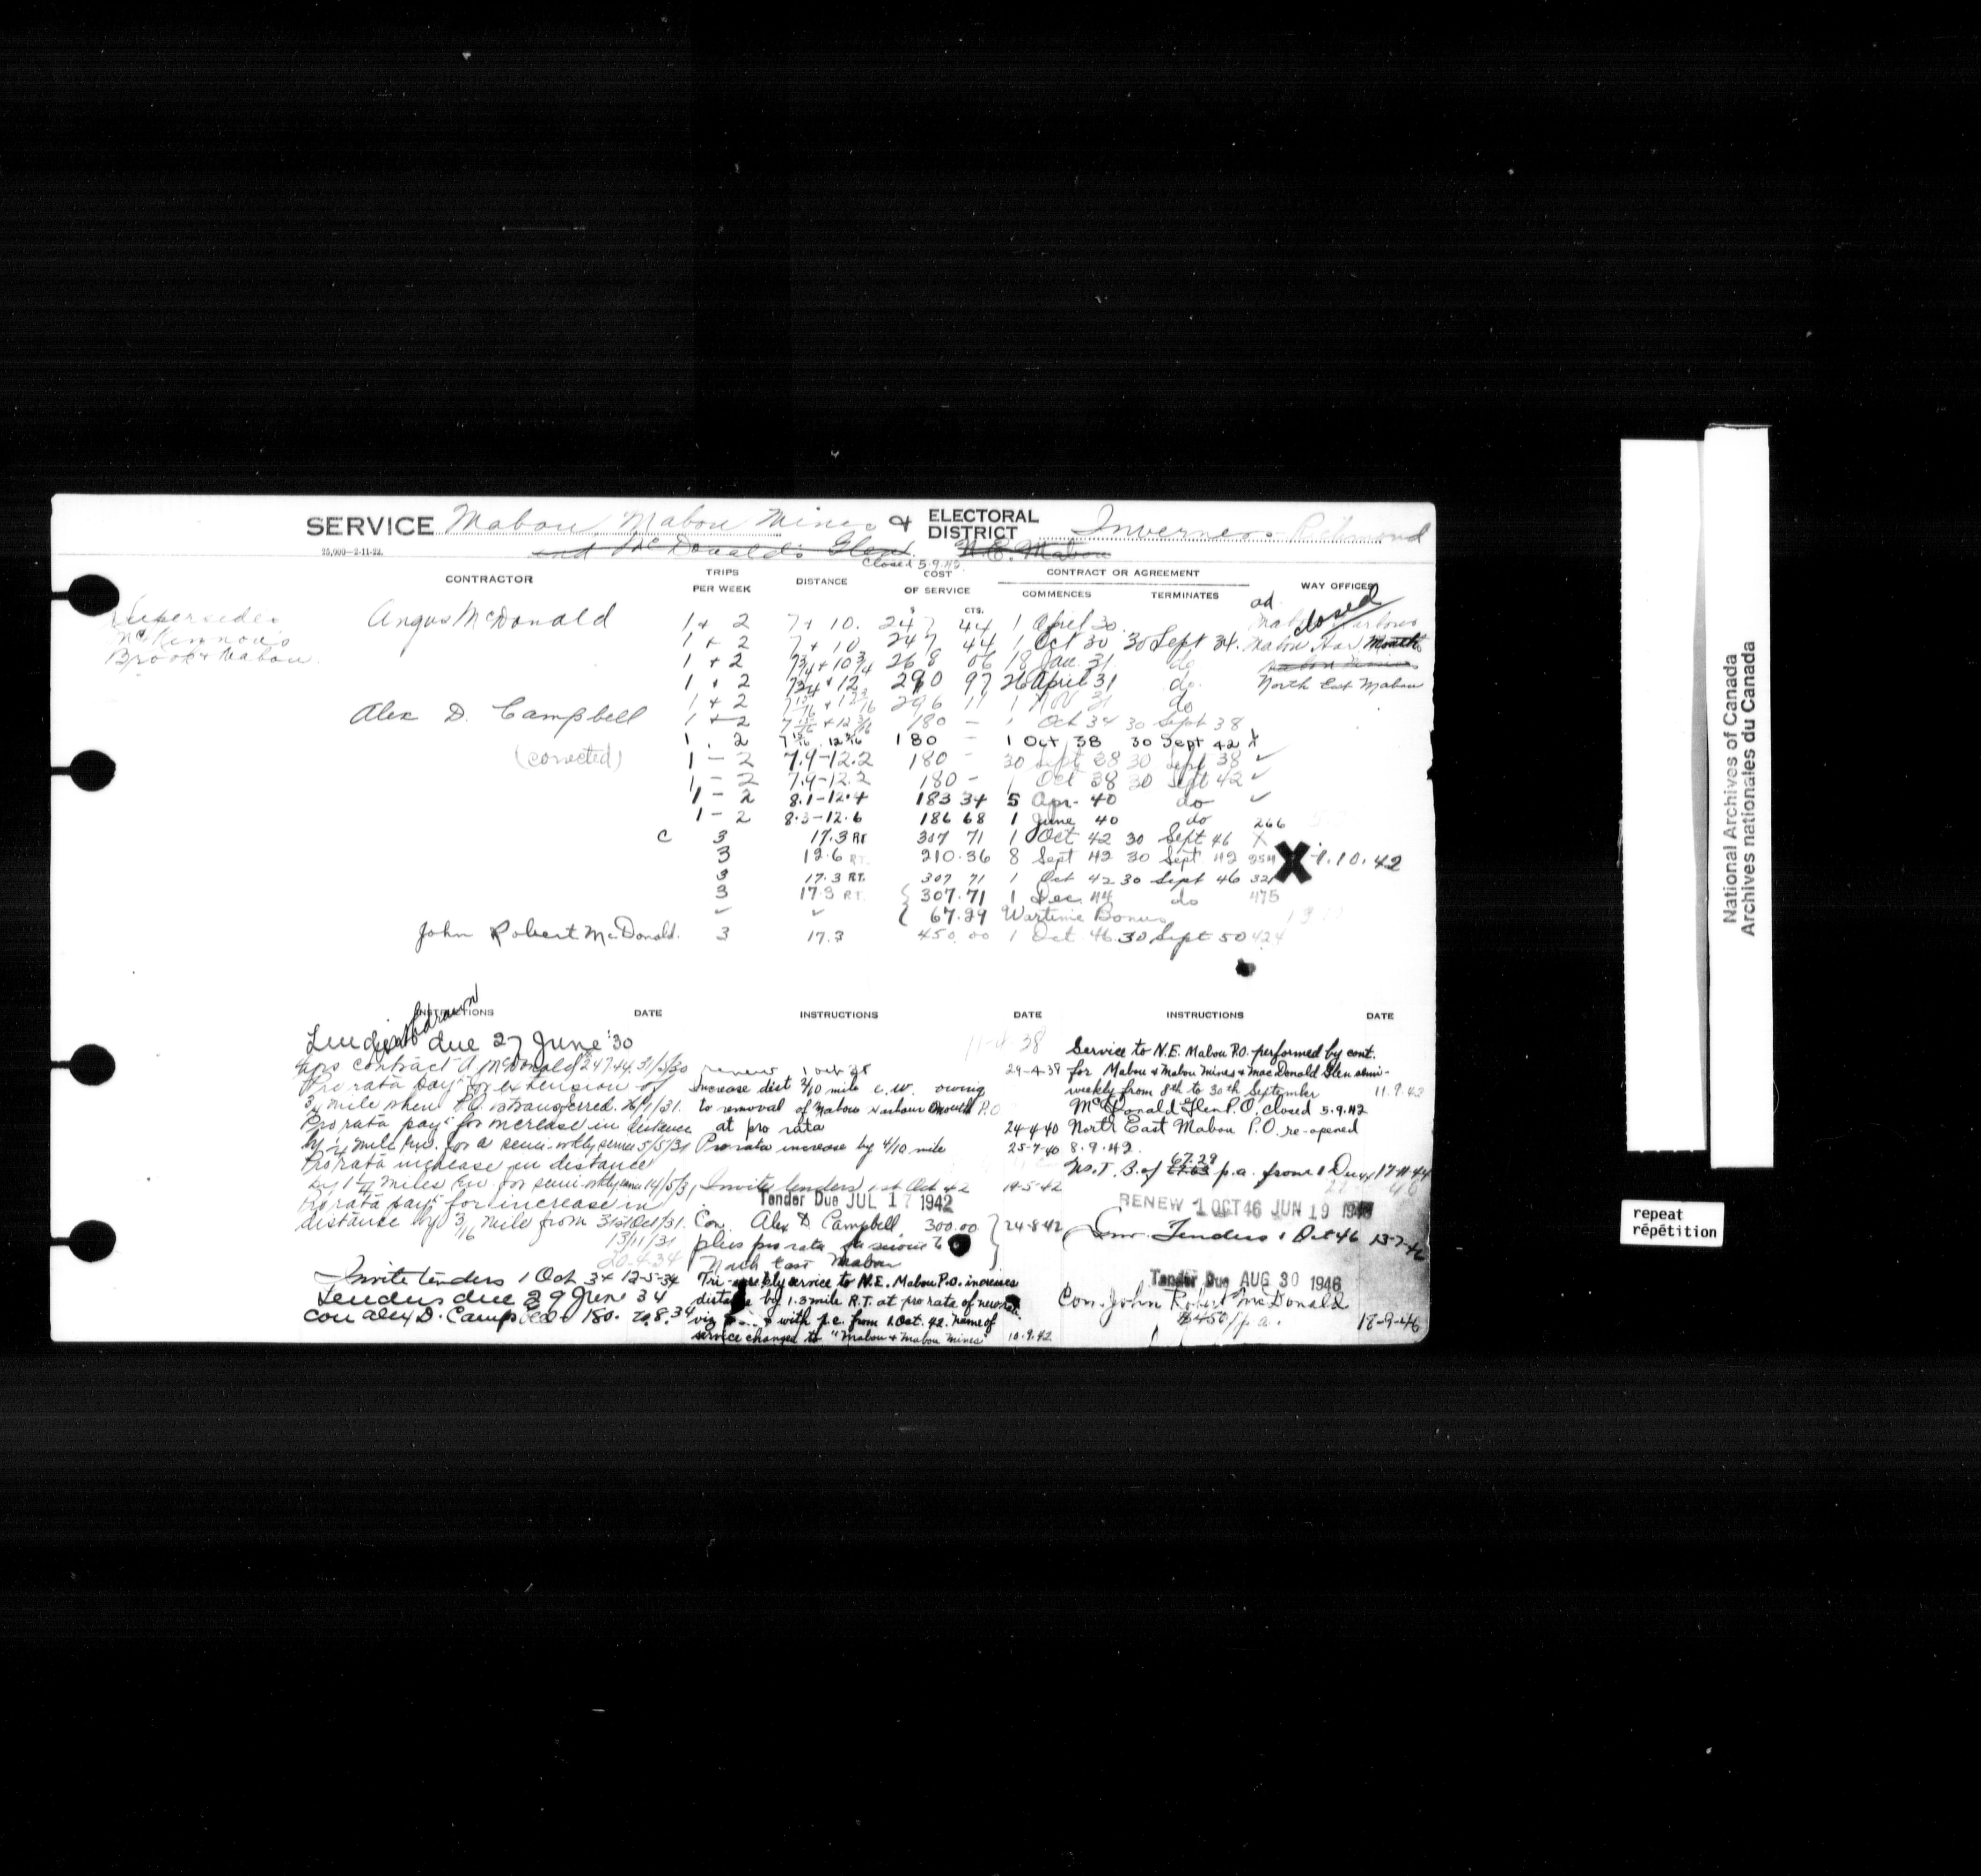 SERVICE Mabou, Mabou Mines & ELECTORAL DISTRICT Inverness-Richmond
25,000-2-11-22. and McDonald's Glen. N.E. Mabou
Closed 5.9.42
CONTRACTOR TRIPS PER WEEK DISTANCE COST OF SERVICE CONTRACT OR AGREEMENT WAY OFFICES
COMMENCES TERMINATES
$ CTS.
Supersedes Angus McDonald 1 + 2 7 + 10. 247 44 1 April 30. closed
McKinnon's 1 + 2 7 + 10 247 44 1 Oct 30 30 Sept 34. Mabou Har Mouth
Brook & Mabou. 1 + 2 7 3/4 + 10 3/4 268 06 18 Jan. 31 do
1 + 2 7 3/4 + 12 290 97 26 April 31 do. North East Mabou
1 + 2 7 15/16 + 12 3/16 296 11 1 Nov 31 do
Alex D. Campbell 1 + 2 7 15/16 + 12 3/16 180 - 1 Oct 34 30 Sept 38
1 . 2 7 15/16 . 12 3/16 180 - 1 Oct 38 30 Sept 42 X
(corrected) 1 - 2 7.9-12.2 180 - 30 Sept 38 30 Sept 38 ✓
1 - 2 7.9-12.2 180 - 1 Oct 38 30 Sept 42 ✓
1 - 2 8.1-12.4 183 34 5 Apr- 40 do ✓
1 - 2 8.3-12.6 186 68 1 June 40 do 266
C 3 17.3 RT 307 71 1 Oct 42 30 Sept 46 X
3 12.6 RT. 210.36 8 Sept 42 30 Sept 42 X 1.10.42
3 17.3 RT. 307 71 1 Oct 42 30 Sept 46
3 17.3 RT. 307.71 1 Dec. 44 do 475
✓ ✓ 67.29 Wartime Bonus
John Robert McDonald. 3 17.3 450.00 1 Oct. 46 30 Sept 50 424
INSTRUCTIONS DATE INSTRUCTIONS DATE INSTRUCTIONS DATE
withdrawn
Tenders due 27 June '30
contract A McDonald 247.44. 31/5/30
Pro rata payt for extension of
3/4 mile when P.O. is transferred. 26/1/31.
Pro rata payt for increase in distance
by 1/4 mile for a semi-wkly service 5/5/31
Pro rata increase in distance
by 1 1/4 miles for semi-wkly service 14/5/31
Pro rata payt for increase in
distance of 3/16 mile from 31st Oct/31.
13/11/31
20-4-34
Invite tenders 1 Oct 34 12-5-34
Tenders due 29 June 34
Con Alex D. Campbell 180. 20.8.34
11-4-38
renew 1 Oct 38 29-4-38
Increase dist 2/10 mile c.w. owing
to removal of Mabou Harbour Mouth P.O
at pro rata 24-4-40
Pro rata increase by 4/10 mile 25-7-40
Invite tenders 1st Oct 42 19-5-42
Tender Due JUL 17 1942
Con. Alex D Campbell 300.00 24-8-42
plus pro rata for service to
North East Mabou
Tri-weekly service to N.E. Mabou P.O. increases
distance by 1.3 mile R.T. at pro rata of new
with p.c. from 1 Oct. 42. Name of
service changed to "Mabou & Mabou Mines" 10.9.42
Service to N.E. Mabou P.O. performed by cont.
for Mabou & Mabou Mines & MacDonald Glen semi-
weekly from 8th to 30th September 11.9.42
McDonald Glen P.O. closed 5.9.42
North East Mabou P.O. re-opened
8.9.42.
67.29
W.T.B. of p.a. from 1 Dec, 17-11-44
RENEW 1 OCT 46 JUN 19 1946
Inv. Tenders 1 Oct 46 13-7-46
Tender Due AUG 30 1946
Con. John Robert McDonald
$450/p.a. 18-9-46
National Archives of Canada
Archives nationales du Canada
repeat
répétition